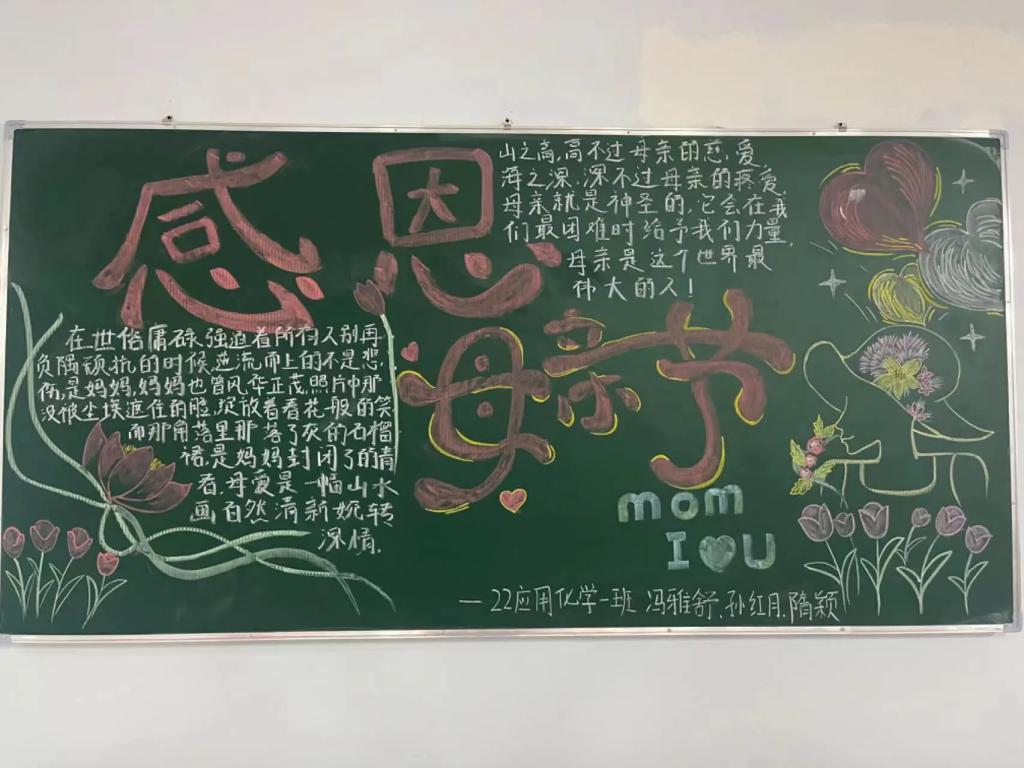 感恩
母亲节
山之高,高不过母亲的慈爱,
海之深,深不过母亲的疼爱,
母亲就是神圣的,它会在我
们最困难时给予我们力量,
母亲是这个世界最
伟大的人!
在世俗庸碌强迫着所有人别再
负隅顽抗的时候逆流而上的不是悲
伤,是妈妈,妈妈也曾风华正茂,照片中那
没被尘埃遮住的脸,绽放着看花般的笑
而那角落里那落了灰的石榴
裙,是妈妈封闭了的青
春,母爱是一幅山水
画自然清新婉转
深情.
mom
I U
—22应用化学一班 冯雅舒.孙红月.隋颖